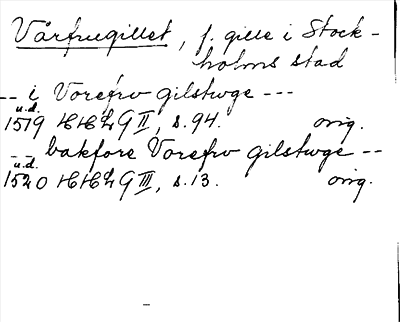 Vårfrugillet, f. gille i Stock-
holms stad
-- i Vorefrv gilstwge ---
u.d.
1519 HHLG II, s. 94. orig.
-- bakfore Vorefrv gilstwge --
u.d.
1520 HHLG III, s. 13. orig.